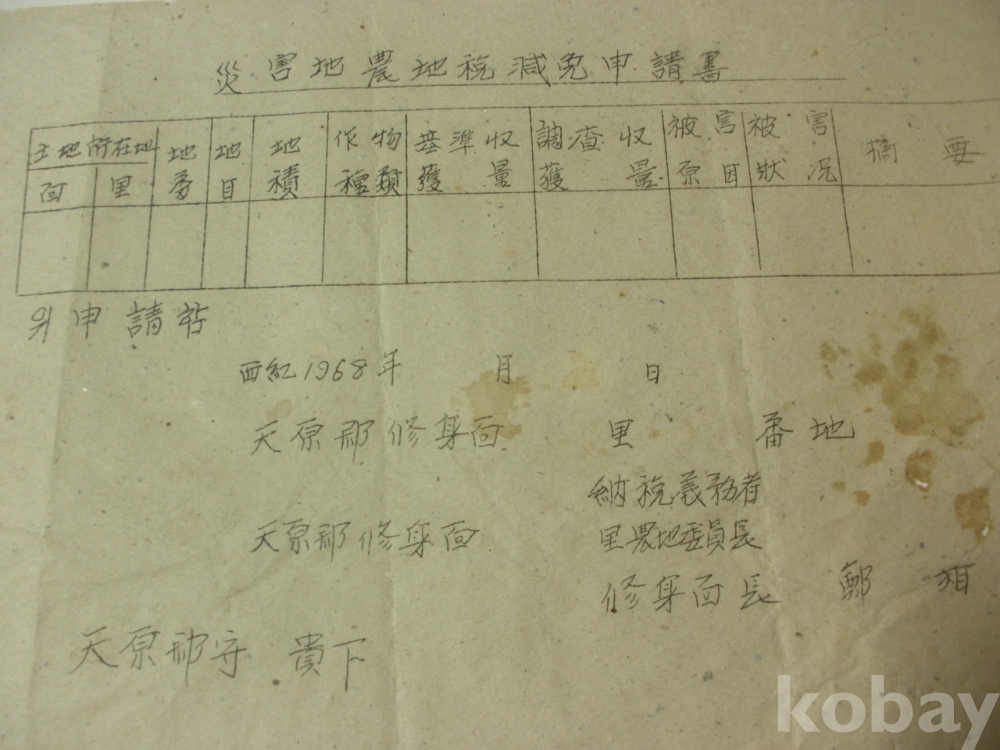 災害地農地稅減免申請書
土地所在地 地 地 地 作物 基準收 調査收 被害 被害 摘要
面 里 番 目 積 種類 穫量 穫量 原因 狀況
위申請함
西紀1968年 月 日
天原郡修身面 里 番地
納稅義務者
天原郡修身面 里農地委員長
修身面長 鄭
天原郡守 貴下
kobay